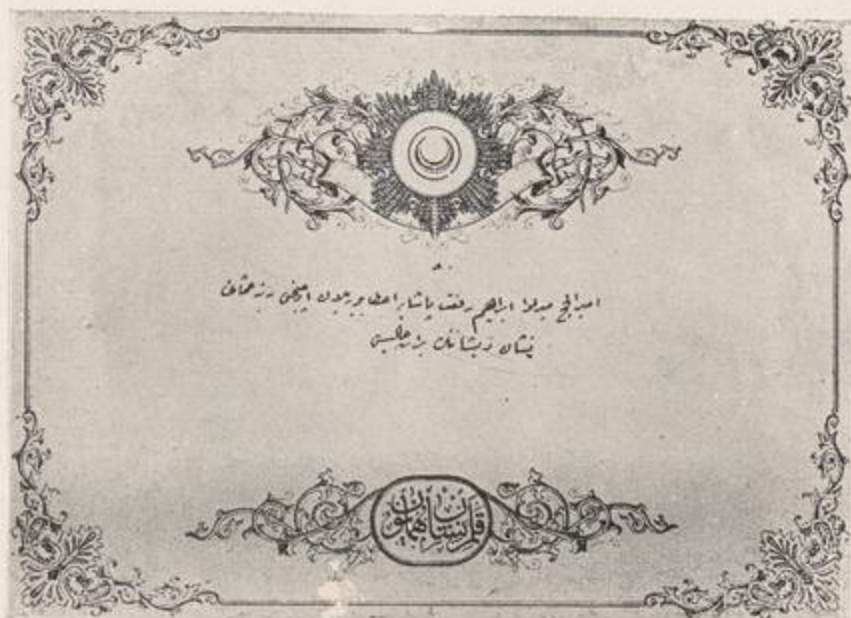 امير الحج ميرلوا ابراهيم رفعت پاشايه اعطا بويريلان اوچنجى رتبه عثمانى
نشان ذيشاننك براتيدر
قلم نشان همايون